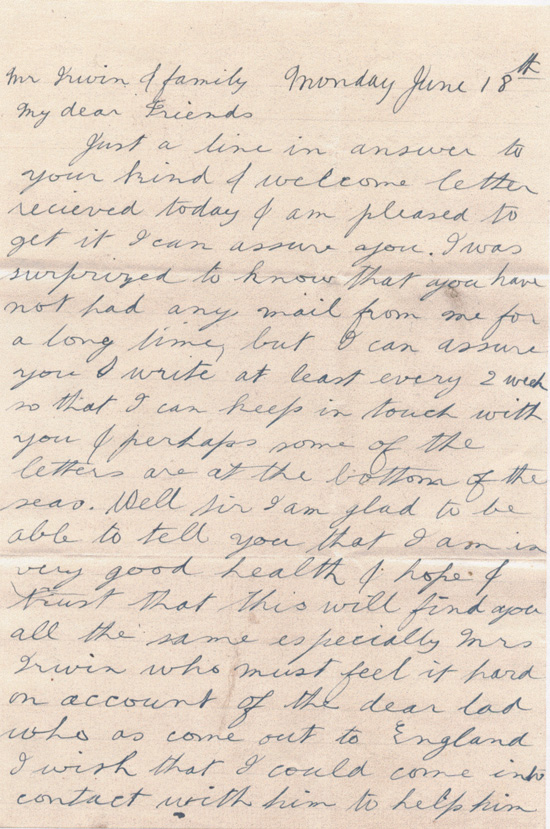 Mr Irwin & family Monday June 18th
My dear Friends
Just a line in answer to
your kind & welcome letter
recieved today & am pleased to
get it I can assure you. I was
surprized to know that you have
not had any mail from me for
a long time, but I can assure
you I write at least every 2 week
so that I can keep in touch with
you & perhaps some of the
letters are at the bottom of the
seas. Well Sir I am glad to be
able to tell you that I am in
very good health & hope &
trust that this will find you
all the same especially Mrs
Irwin who must feel it hard
on account of the dear lad
who as come out to England
I wish that I could come into
contact with him to help him